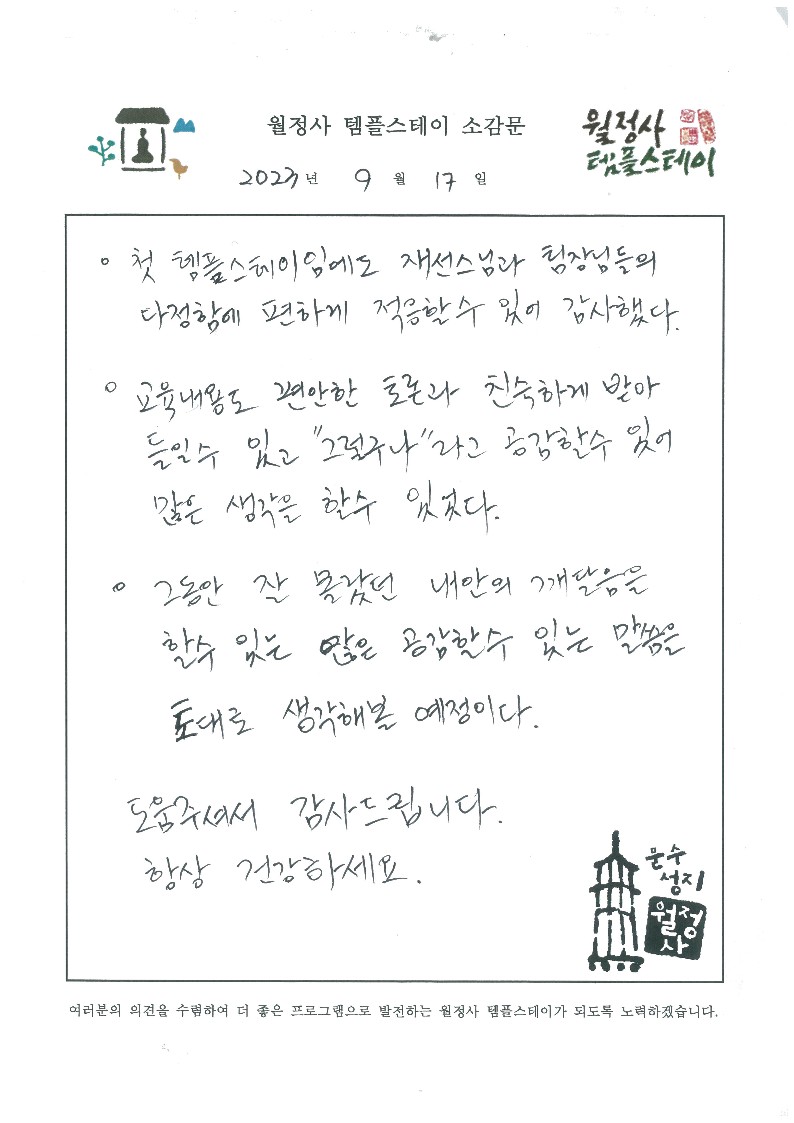 월정사 템플스테이 소감문
월정사
템플스테이
2023년 9월 17일
◦ 첫 템플스테이임에도 재선스님과 팀장님들의
다정함에 편하게 적응할수 있어 감사했다.
◦ 교육내용도 편안한 토론과 친숙하게 받아
들일수 있고 "그렇구나"라고 공감할수 있어
많은 생각을 할수 있었다.
◦ 그동안 잘 몰랐던 내안의 깨달음을
할수 있는 많은 공감할수 있는 말씀을
토대로 생각해볼 예정이다.
도움주셔서 감사드립니다.
항상 건강하세요.
문수
성지
월정
사
여러분의 의견을 수렴하여 더 좋은 프로그램으로 발전하는 월정사 템플스테이가 되도록 노력하겠습니다.